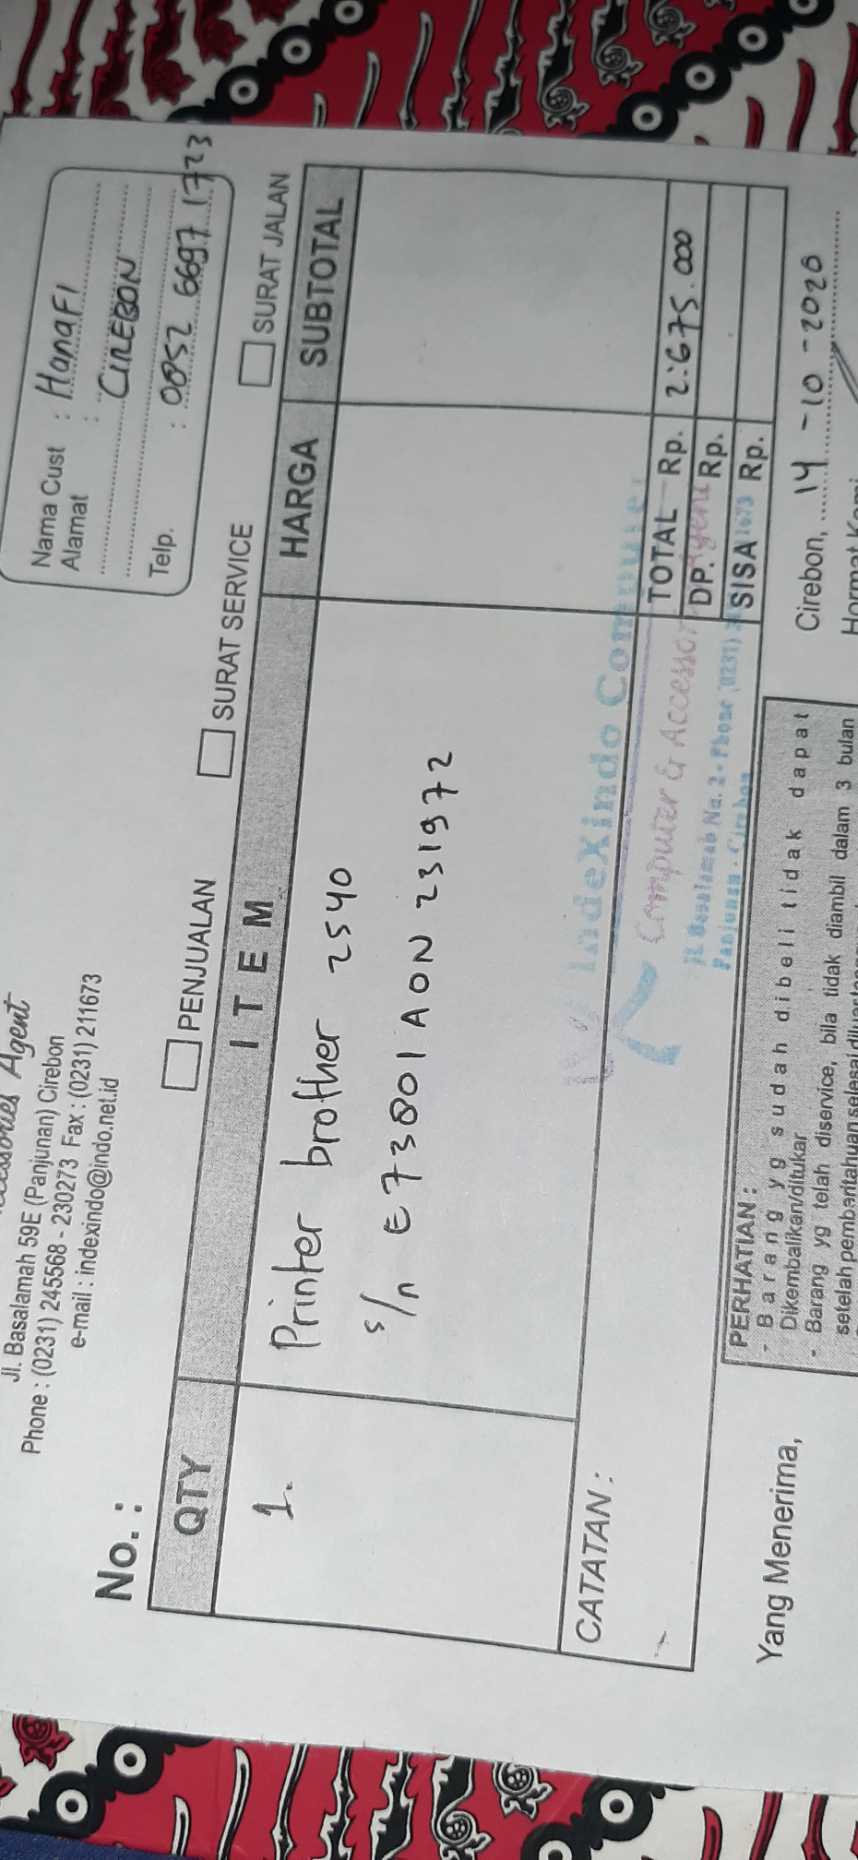 Accessories Agent
Jl. Basalamah 59E (Panjunan) Cirebon
Phone : (0231) 245568 - 230273 Fax : (0231) 211673
e-mail : indexindo@indo.net.id
Nama Cust : HanaFI
Alamat : CIREBON
Telp. : 0852 6697 1723
No. :
PENJUALAN SURAT SERVICE SURAT JALAN
QTY ITEM HARGA SUBTOTAL
1. Printer brother 2540
s/n E73801A0N231972
CATATAN :
TOTAL Rp. 2.675.000
DP. Rp.
SISA Rp.
IndeXindo Computer
Computer & Accessories Agent
Jl. Basalamah No. 2 - Phone (0231)
Panjunan - Cirebon
PERHATIAN :
- Barang yg sudah dibeli tidak dapat
Dikembalikan/ditukar
- Barang yg telah diservice, bila tidak diambil dalam 3 bulan
setelah pemberitahuan selesai
Yang Menerima,
Cirebon, 14 - 10 - 2020
Hormat Kami